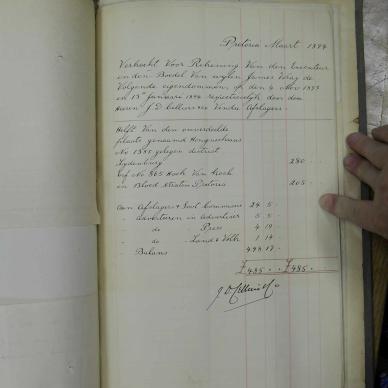 Pretoria Maart 1894
Verkocht Voor Rekening Van den Executeur
in den Boedel Van wylen James Gray de
Volgende eigendommen op den 4 Nov 1893
en 13 Januarie 1894 respectievelyk door den
Heeren J. D. Celliers & Co Vendu Afslagers
Helft Van den onverdeelde
plaats genaamd
No 1355 gelegen district
Lydenburg 280
Erf No 865 Hoek Van Kock
en Bloed Straten Pretoria 205
Aan Afslagers & Govt Commissie 24 5
" Adverteeren in Advertiser 5 5
" do " Press 4 19
" do " Land & Volk 1 14
Balans 448 17
£485 . . £485 .
J D Celliers & Co